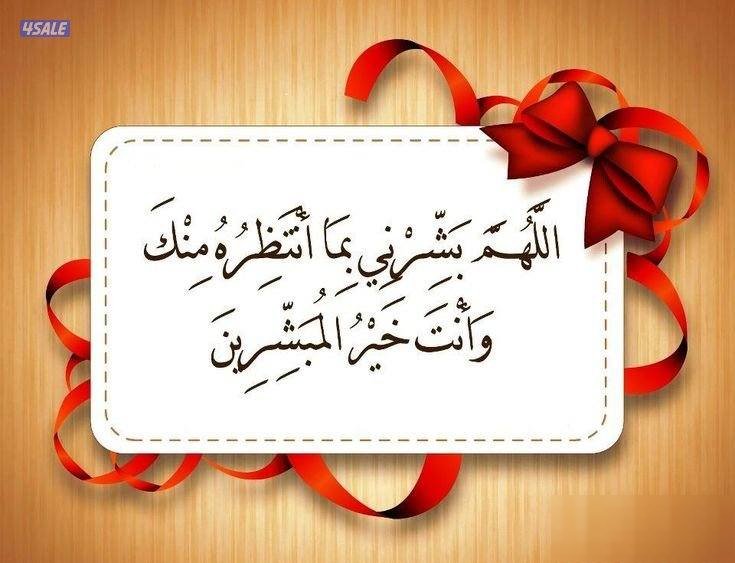 4SALE
اللَّهُمَّ بَشِّرْنِي بِمَا أَنْتَظِرُهُ مِنْكَ
وَأَنْتَ خَيْرُ الْمُبَشِّرِينَ